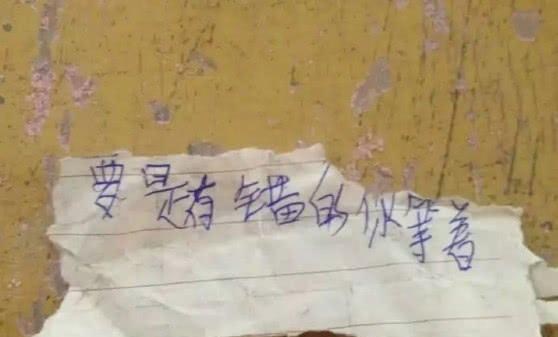 要是有错的你等着